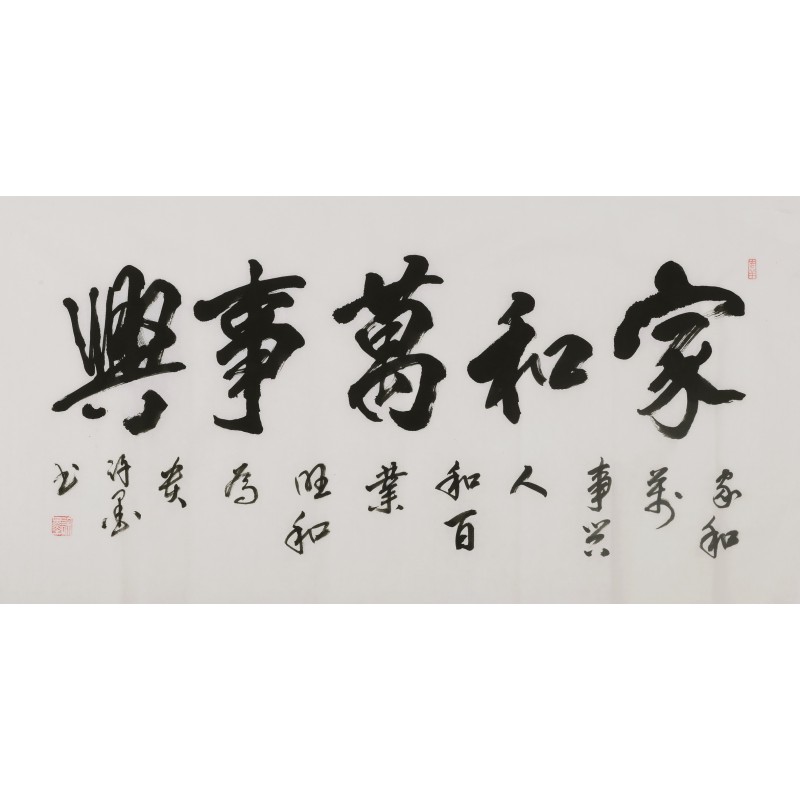 家和萬事興
家和
萬
事兴
人
和百
業
旺和
為
贵
许墨
书